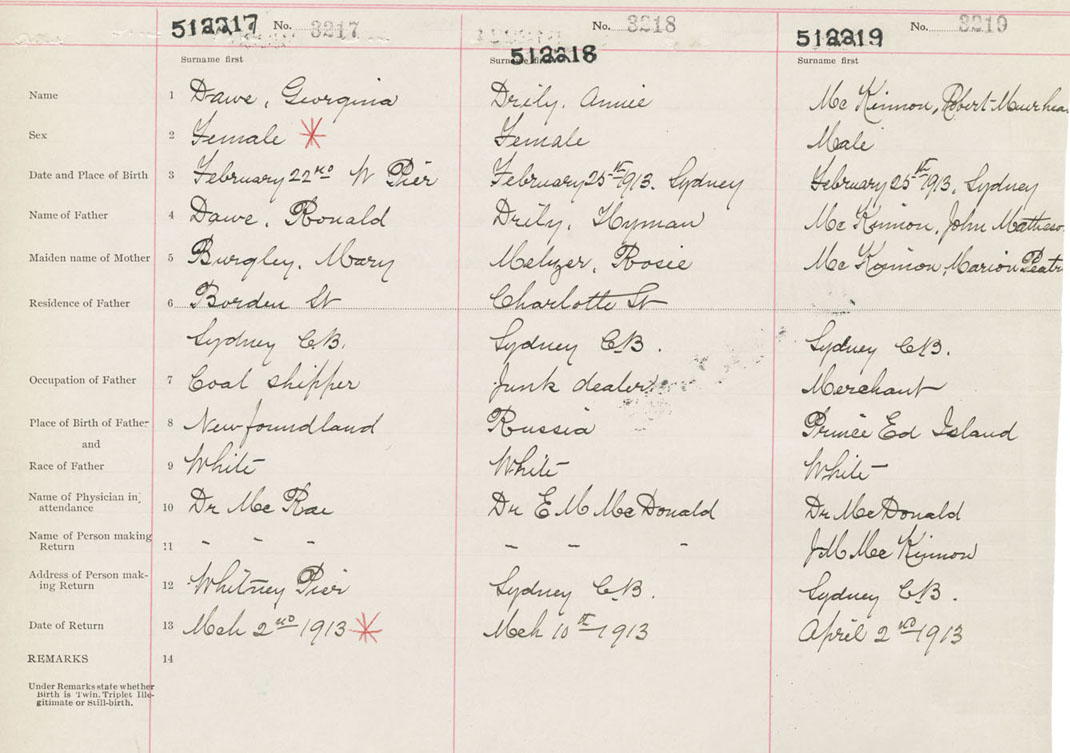 512217 No. 3217 No. 3218 No. 3219
512218 512219
Surname first Surname first Surname first
Name 1 Dawe, Georgina Drily, Annie Mc Kinnon, Robert Muirhea
Sex 2 Female Female Male
Date and Place of Birth 3 February 22nd W Pier February 25th 1913. Sydney February 25th 1913, Sydney
Name of Father 4 Dawe, Ronald Drily, Hyman Mc Kinnon, John Matheso
Maiden name of Mother 5 Burgley, Mary Meltzer, Rosie Mc Kinnon, Marion Beatr
Residence of Father 6 Borden St Charlotte St
Sydney C.B. Sydney C.B. Sydney C.B.
Occupation of Father 7 Coal shipper Junk dealer Merchant
Place of Birth of Father 8 Newfoundland Russia Prince Ed Island
and
Race of Father 9 White White White
Name of Physician in attendance 10 Dr Mc Rae Dr E M McDonald Dr McDonald
Name of Person making Return 11 - - - - - - J M Mc Kinnon
Address of Person mak-
ing Return 12 Whitney Pier Sydney C.B. Sydney C.B.
Date of Return 13 Mch 2nd 1913 Mch 10th 1913 April 2nd 1913
REMARKS 14
Under Remarks state whether
Birth is Twin, Triplet Ille-
gitimate or Still-birth.